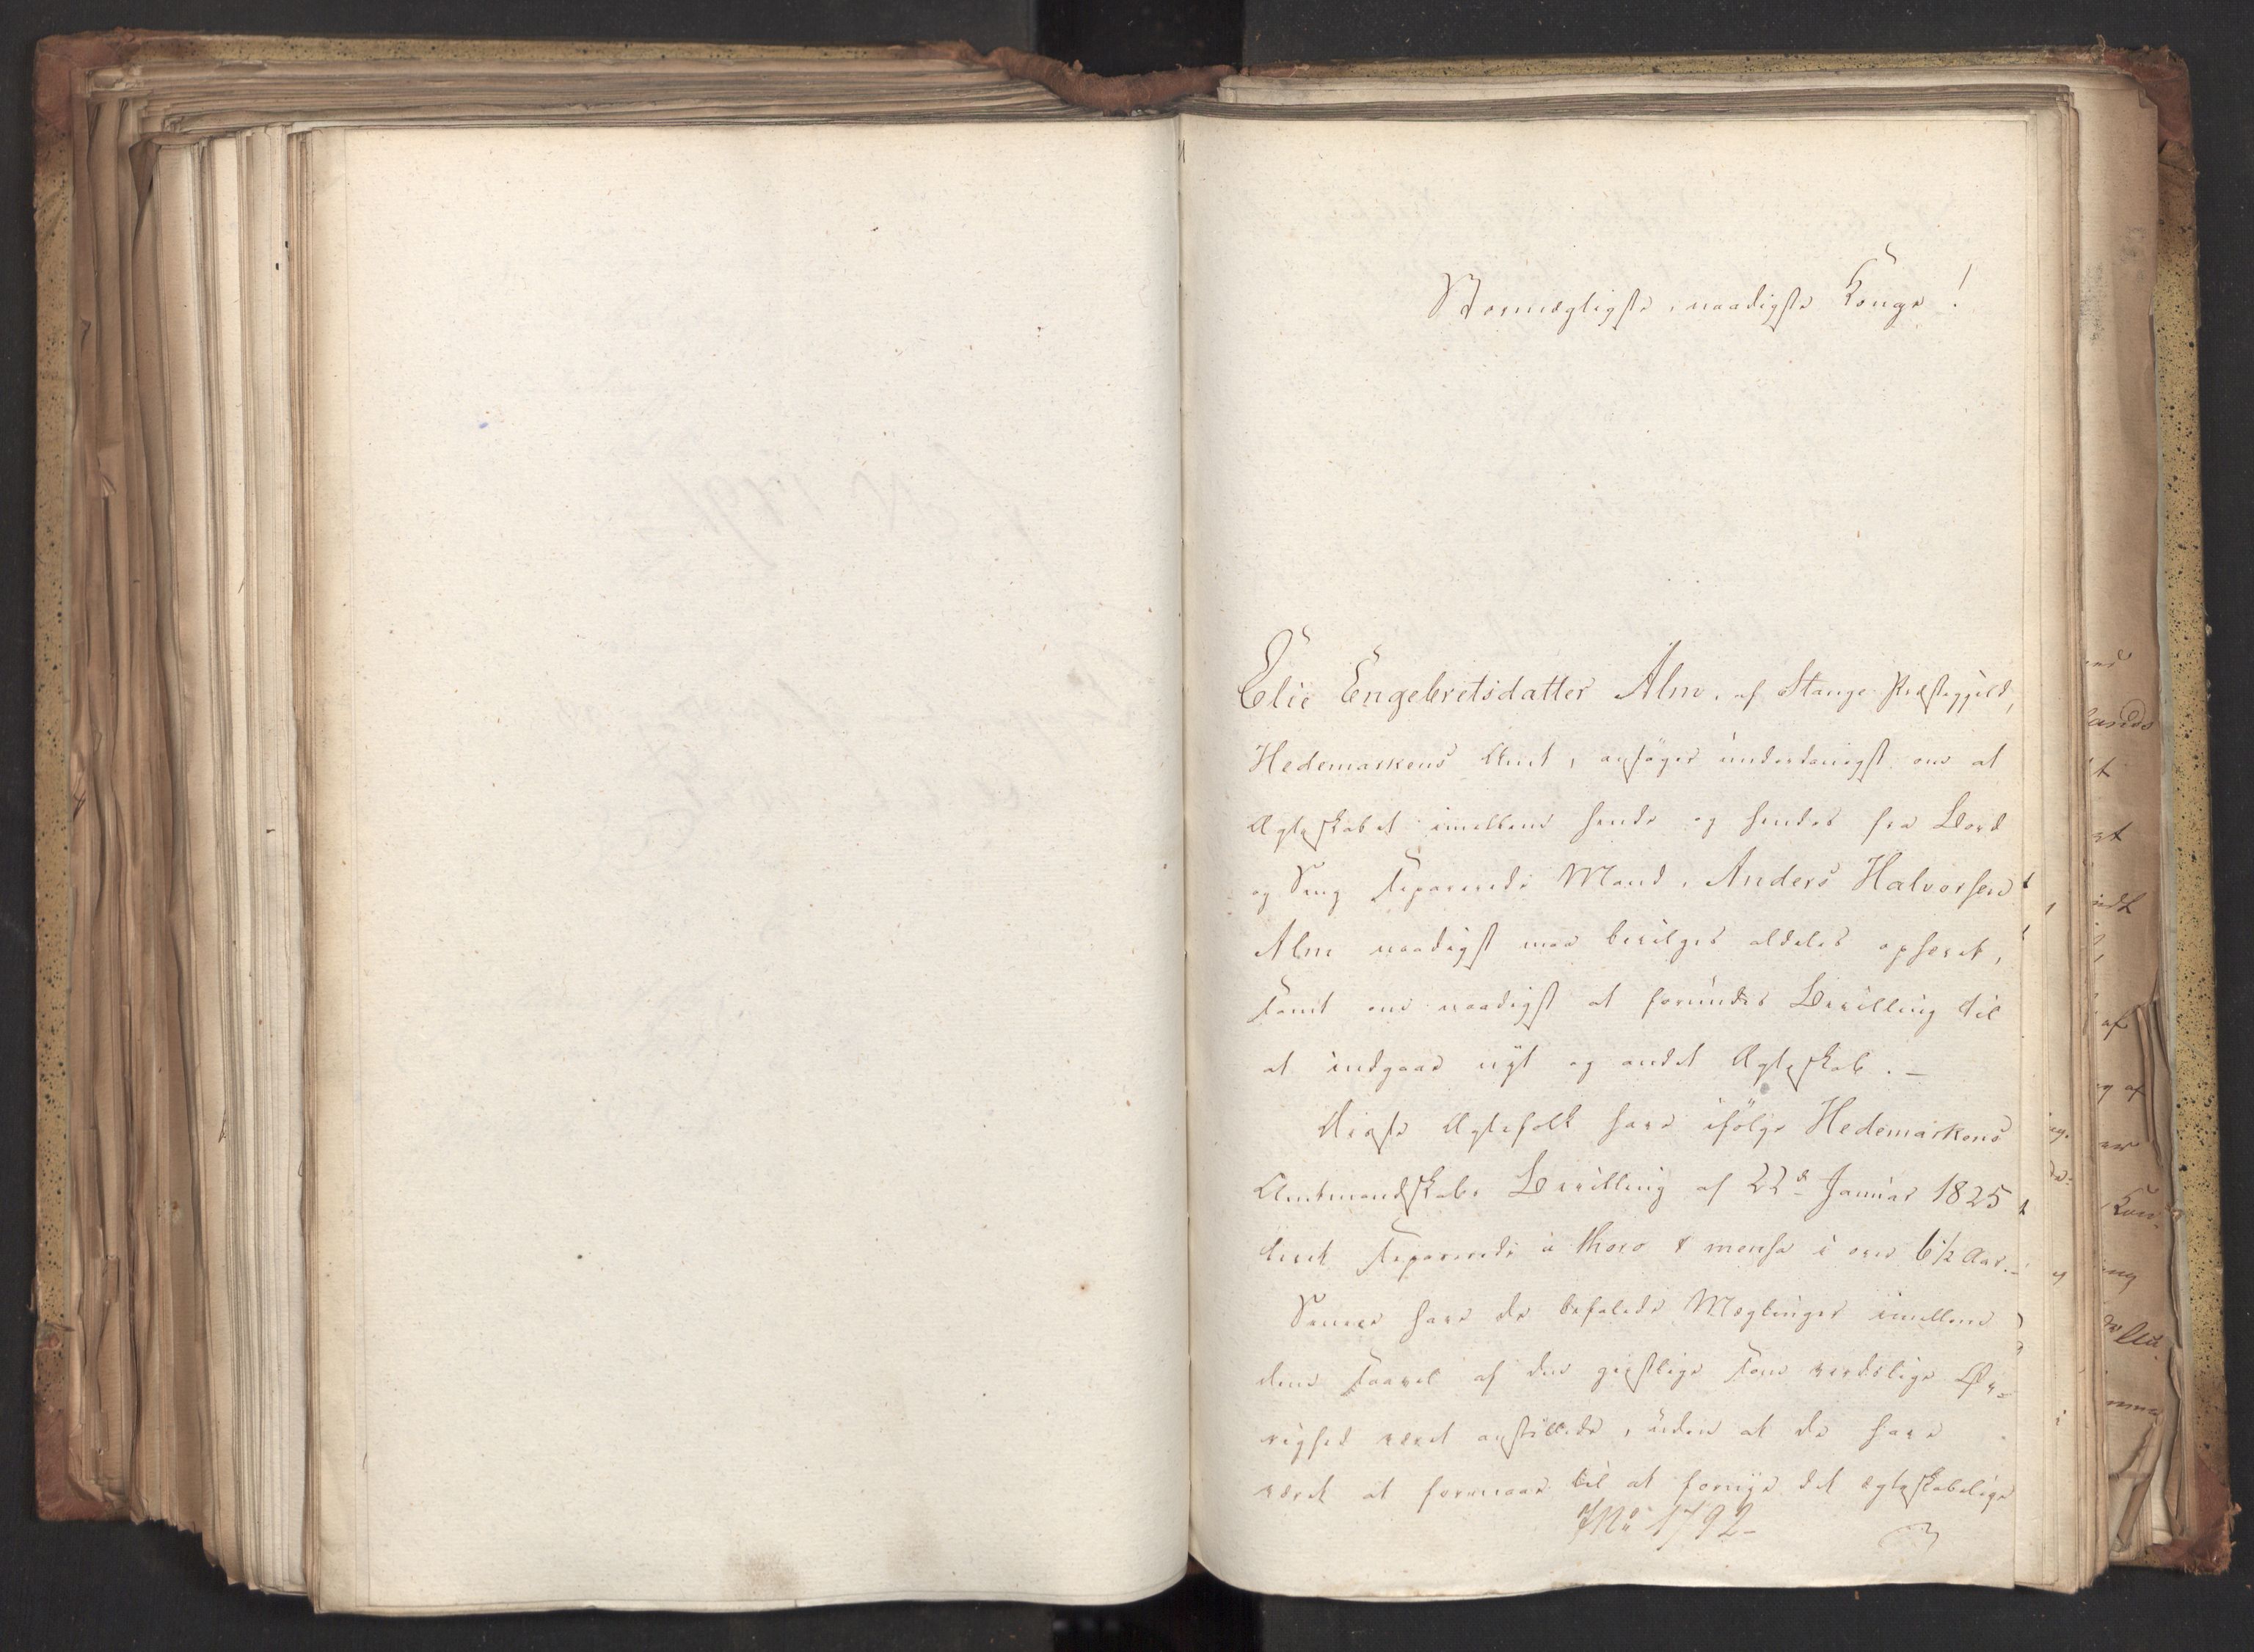 Stormægtigste, naadigste Konge!
Elie Engebretsdatter Alm, af Stange Præstegjeld,
Hedemarkens Amt, ansøger underdanigst om at
Ægteskabet imellem hende og hendes fra Bord
og Seng separerede Mand, Anders Halvorsen
Alm naadigst maa bevilges aldeles ophævet,
samt om naadigst at forundes Bevilling til
at indgaae nyt og andet Ægteskab. —
Disse Ægtefolk have ifølge Hedemarkens
Amtmandskabs Bevilling af 22d Januar 1825
levet separerede a thoro & mensa i over 6 1/2 Aar. —
Senere have de befalede Mæglinger imellem
dem saavel af den geistlige som verdslige Øv-
righed været anstillede, uden at de have
været at formaae til at fornye det ægteskabelige
JNo 1792 —